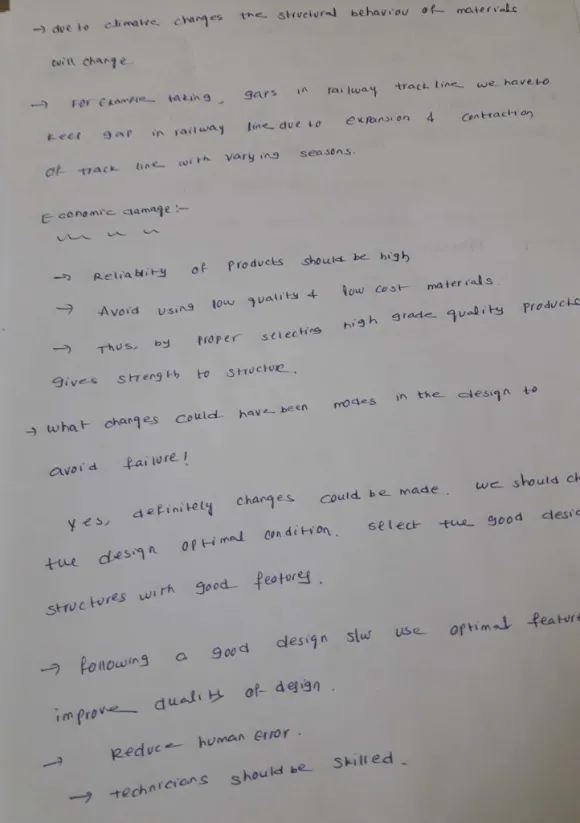 → due to climatic changes the structural behaviou of materials
will change.
→ For example taking, gaps in railway track line we have to
keep gap in railway line due to expansion & contraction
of track line with varying seasons.
Economic damage :-
→ Reliablity of products should be high
→ Avoid using low quality & low cost materials.
→ Thus, by proper selecting high grade quality products
gives strength to structue.
→ what changes could have been modes in the design to
avoid failure!
yes, definitely changes could be made. we should ch
the design optimal condition. select the good desig
structures with good features.
→ following a good design s/w use optimal featur
improve quality of design.
→ Reduce human error.
→ technicians should be skilled.